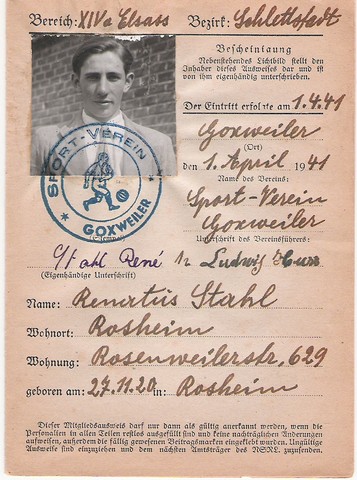 Bereich: XIVa Elsass Bezirk: Schlettstadt
Bescheinigung
Nebenstehendes Lichtbild stellt den
Inhaber dieses Ausweises dar und ist
von ihm eigenhändig unterschrieben.
Der Eintritt erfolgte am 1.4.41
Goxweiler
(Ort)
den 1. April 1941
Name des Vereins:
Sport-Verein
Goxweiler
Unterschrift des Vereinsführers:
SPORT-VEREIN
* GOXWEILER *
Stahl René Ludwig
(Eigenhändige Unterschrift)
Name: Renatus Stahl
Wohnort: Rosheim
Wohnung: Rosenweilerstr. 629
geboren am: 27.11.20 in Rosheim
Dieser Mitgliedsausweis darf nur dann als gültig anerkannt werden, wenn die
Personalien in allen Teilen restlos ausgefüllt sind und keine nachträglichen Änderungen
aufweisen, außerdem die fällig gewesenen Beitragsmarken eingeklebt wurden. Ungültige
Ausweise sind einzuziehen und dem nächsten Amtsträger des NSRL. zuzustellen.